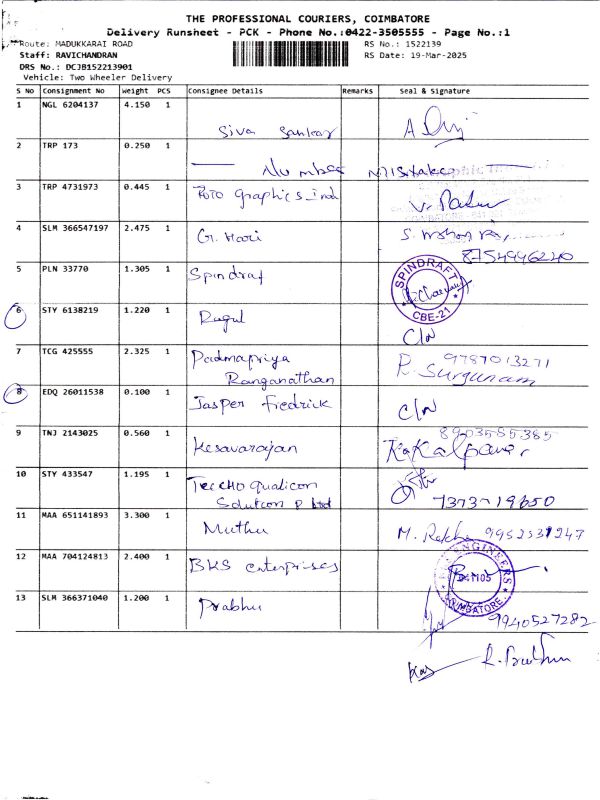 THE PROFESSIONAL COURIERS, COIMBATORE
Delivery Runsheet - PCK - Phone No.:0422-3505555 - Page No.:1
Route: MADUKKARAI ROAD RS No.: 1522139
Staff: RAVICHANDRAN RS Date: 19-Mar-2025
DRS No.: DCJB152213901
Vehicle: Two Wheeler Delivery
S No Consignment No Weight PCS Consignee Details Remarks Seal & Signature
1 NGL 6204137 4.150 1
Siva Sankar
2 TRP 173 0.250 1
Number Mistake
3 TRP 4731973 0.445 1 Foto Graphics_Ind
4 SLM 366547197 2.475 1 G. Hari
8754996240
5 PLN 33770 1.305 1 Spindraf
SPINDRAFT
CBE-21
6 STY 6138219 1.220 1 Ragul C/N
7 TCG 425555 2.325 1 Padmapriya 9787013271
Ranganathan R. Surgunam
8 EDQ 26011538 0.100 1 Jasper Fredrick C/N
9 TNJ 2143025 0.560 1 Kesavarajan 8903585385
10 STY 433547 1.195 1 Teccho Qualicon
Solution P Ltd 7373719650
11 MAA 651141893 3.300 1 Muthu M. Rekha 9952537247
12 MAA 704124813 2.400 1 BKS enterprises
ENGINEERS
COIMBATORE
13 SLM 366371040 1.200 1 Prabhu 9940527282